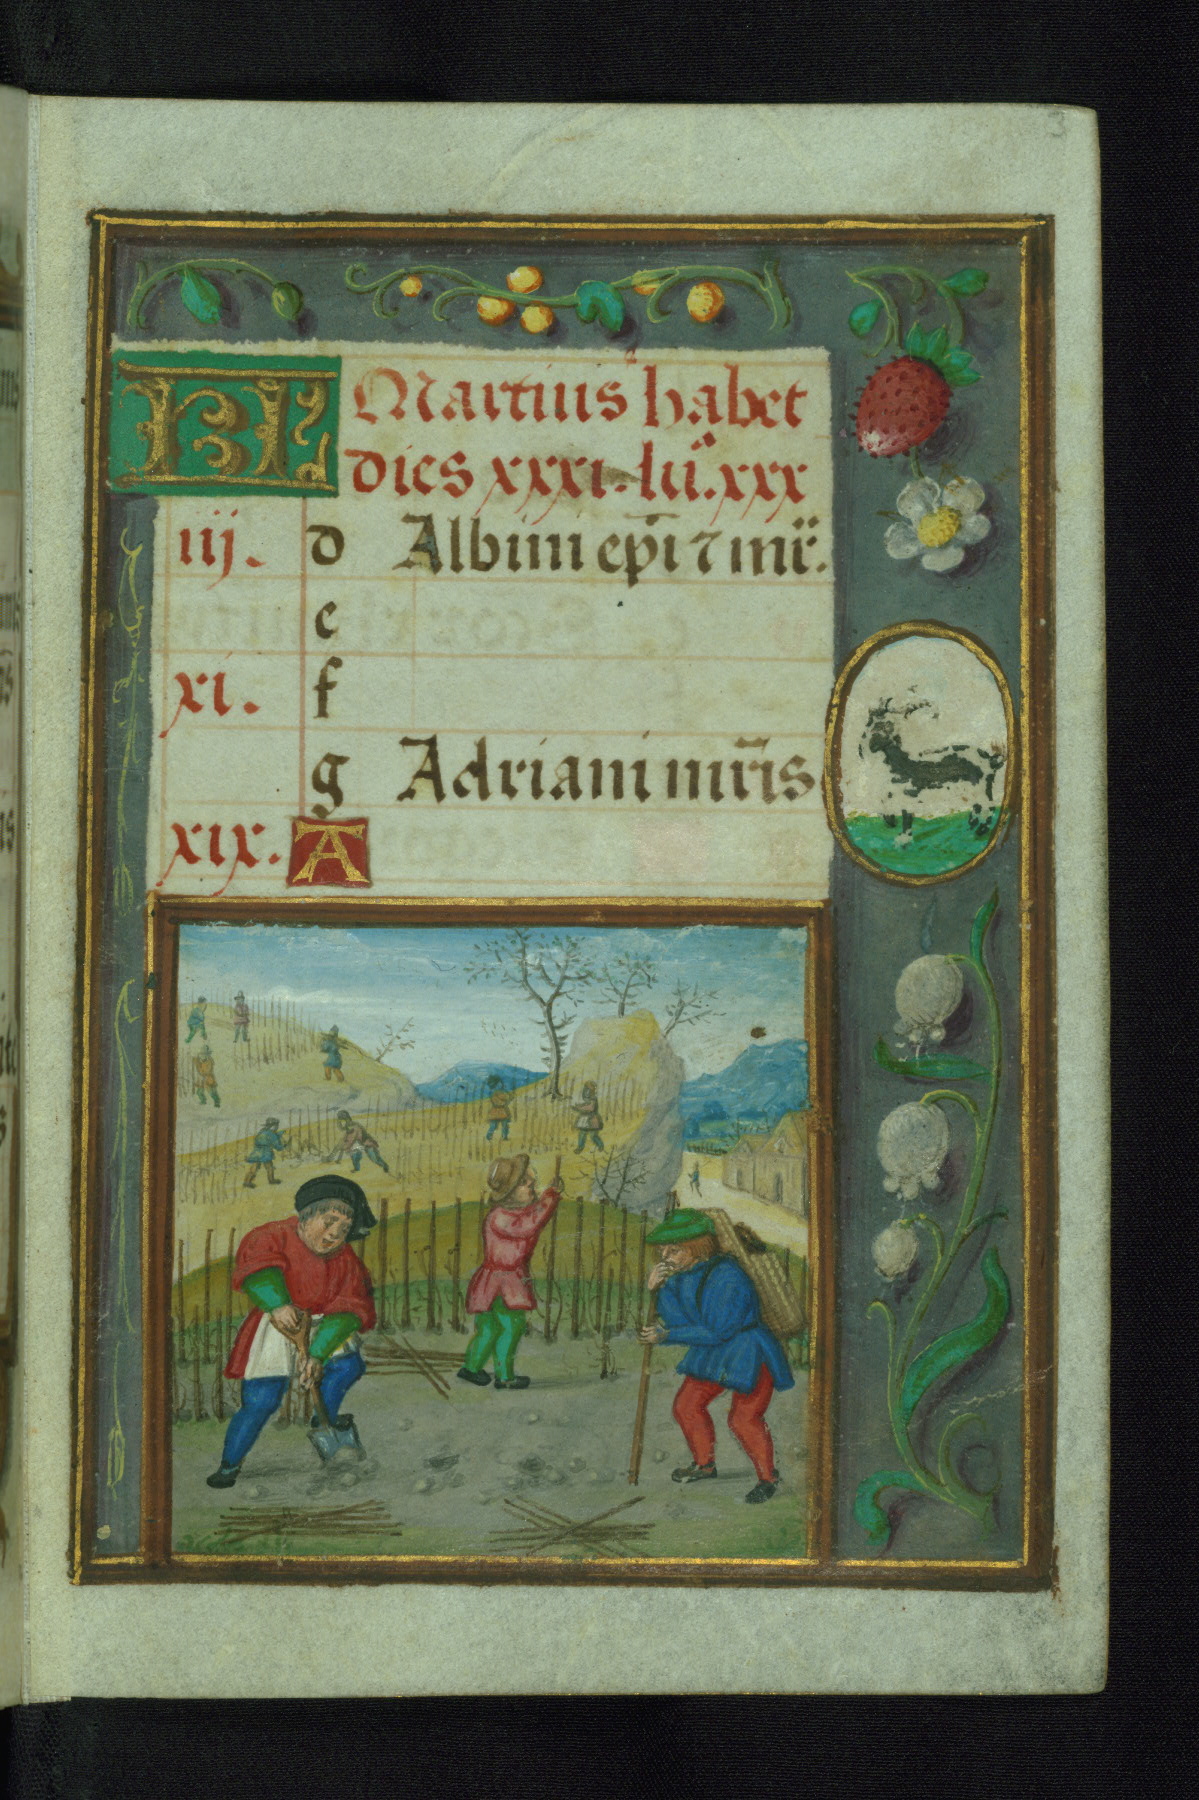 3
KL Martius habet
dies xxxi. lu.ª xxx
iij. d Albini ep̄i ⁊ mr̄.
e
xi. f
g Adriani mr̄is
xix. A